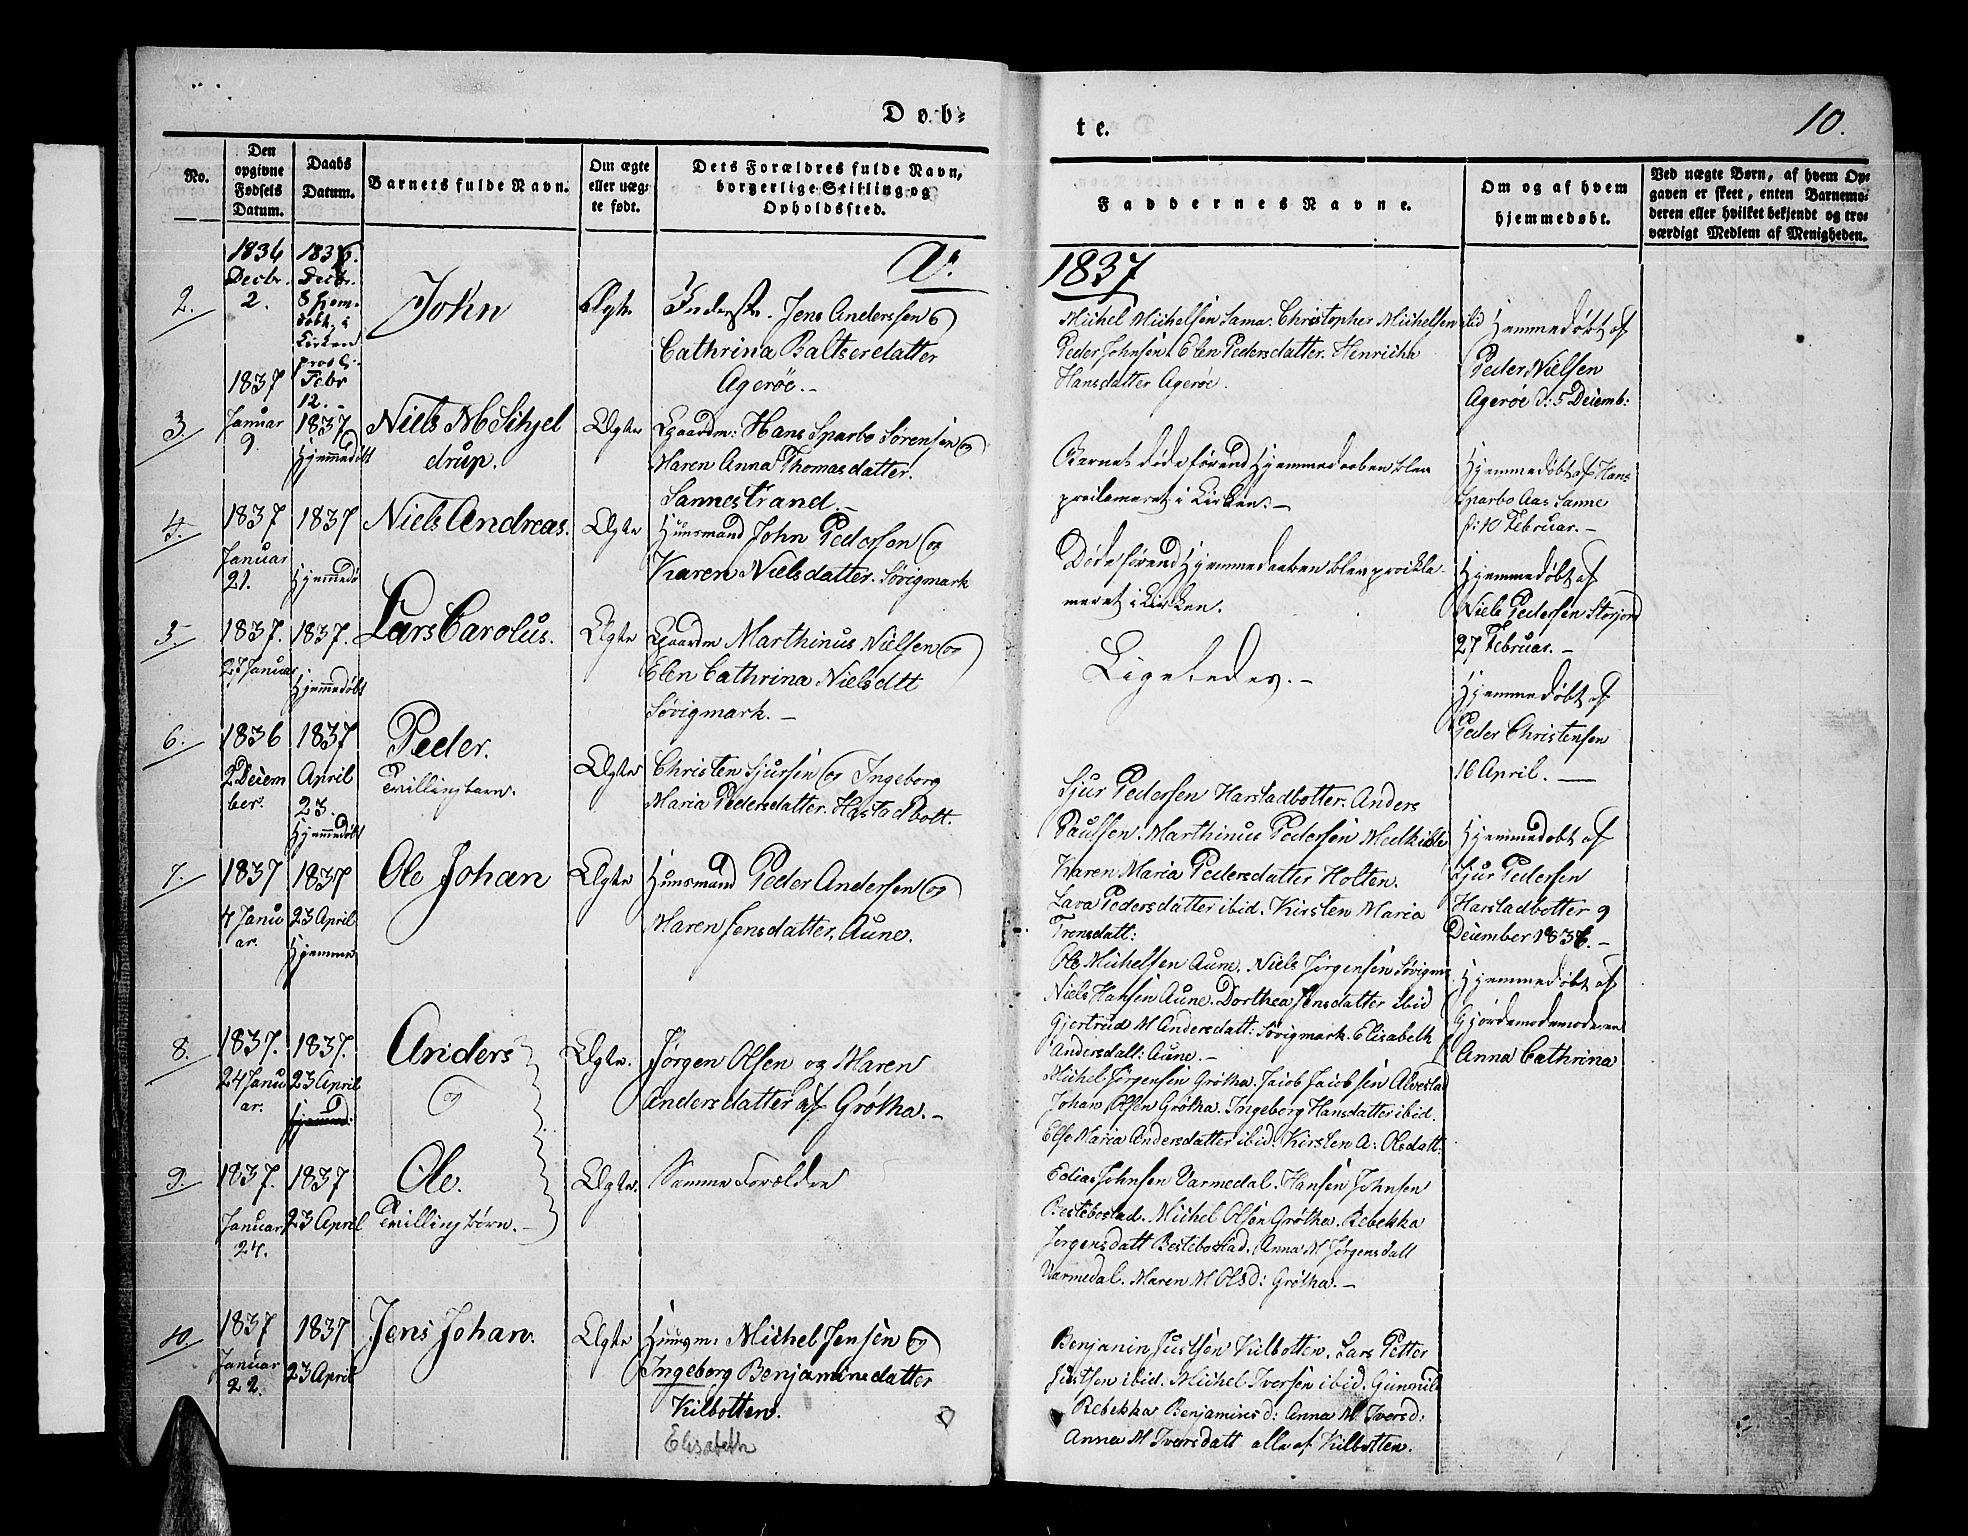 Døb-
te.
10.
No.
Den
opgivne
Fødsels
Datum.
Daabs
Datum.
Barnets fulde Navn.
Om ægte
eller uæg-
te født.
Dets Forældres fulde Navn,
borgerlige Stilling og
Opholdssted.
Faddernes Navne.
Om og af hvem
hjemmedøbt.
Ved uægte Børn, af hvem Op-
gaven er skeet, enten Barnemo-
deren eller hvilket bekjendt og tro-
værdigt Medlem af Menigheden.
Ao.
1837
2.
1836
Decbr.
2.
1836.
Decbr.
8 hjem-
døbt, i
Kirken
Febr
12.-
John
Ægte
Inderst. Jens Anderssen og
Cathrina Baltserdatter
Agerøe.-
Michel Michelsen Sama. Christopher Michelsen ibid
Peder Johnsen. Elen Pedersdatter. Henricha
Hansdatter Agerøe.
Hjemmedøbt af
Peder Nielsen
Agerøe d: 5 Decemb:
3.
1837
Januar
9.
1837
Hjemmedøbt
Niels M Schjel
drup.
Ægte
Lgaardm: Hans Sparbo Sørensen og
Maren Anna Thomasdatter.
Sannestrand.-
Barnet døde førend Hjemmedaaben blev
proclameret i Kirken.-
Hjemmedøbt af Hans
Sparbo Aas Sanne
d: 10 Februar.-
4.
1837
Januar
21.
1837
Hjemmedø
Niels Andreas.
Ægte
Huusmand John Pedersen og
Karen Nielsdatter. Søvigmark
Døde førend Hjemmedaaben blev procla-
meret i Kirken.
Hjemmedøbt af
Niels Pedersen Storjord
27 Februar.-
5.
1837.
27 Januar
1837.
Hjemmedøbt
Lars Carolus.
Ægte
Lgaardm Marthinus Nielsen og
Elen Cathrina Nielsdtt
Søvigmark.-
Ligeledes.-
Hjemmedøbt af
Peder Christensen
16 April.-
6.
1836
2 Decem
ber.
1837
April
23.
Hjemmedøbt
Peder.
Tvillingbarn.
Ægte
Christen Sjursen og Ingeborg
Maria Pedersdatter. Hastadbott.
Sjur Pedersen Harstadbotter. Anders
Paulsen. Marthinus Pedersen Medkible
Karen Maria Pedersdatter Holten.
Lava Pedersdatter ibid. Kirsten Maria
Trensdatt:
Hjemmedøbt af
Sjur Pedersen
Harstadbotter 9
December 1836.-
7.
1837
4 Janu
ar.
1837
23 April
Hjemme
Ole Johan
Ægte
Huusmand Peder Andersen og
Maren Jensdatter, Aune.
Ole Michelsen Aune. Niels Jørgensen Søvigm
Niels Hansen Aune. Dorthea Jensdatter ibid
Gjertrud M Andersdatt: Søvigmark. Elisabeth
Andersdatt: Aune.-
Hjemmedøbt af
Gjordemodemoderen
Anna Cathrina
8.
1837.
24 Janu
ar.
1837.
23 April
Hjemmed:
Anders
og
Ægte.
Jørgen Olsen og Maren
Andersdatter af Grøtha.-
Michel Jørgensen Grøtha. Jacob Jacobsen Alvestad
Johan Olsen Grøtha. Ingeborg Hansdatter ibid.
Else Maria Andersdatter ibid. Kirsten A: Olsdatt:
9.
1837.
Januar
24.
1837
23 April
Ole.
Tvillingbørn.-
Ægte.
Samme Forældre
Edias Johnsen Varmedal. Hansen Johnsen
Bestebostad. Michel Olsen Grøtha. Rebekka
Jørgensdatt Bestebostad. Anna M Jørgensdatt
Varmedal. Maren M Olsd: Grøtha.-
10.
1837
Januar
22.
1837
23 April
Jens Johan.
Ægte
Huusm: Michel Jensen og
Ingeborg Benjaminsdatter
Kilbotten.
Elisabeth
Benjamin Justsen Kilbotten. Lars Petter
Justsen ibid. Michel Iversen ibid. Gunnild
Rebekka Benjaminsd: Anna M Iversd:
Anna M Iversdatt alle af Kilbotten.